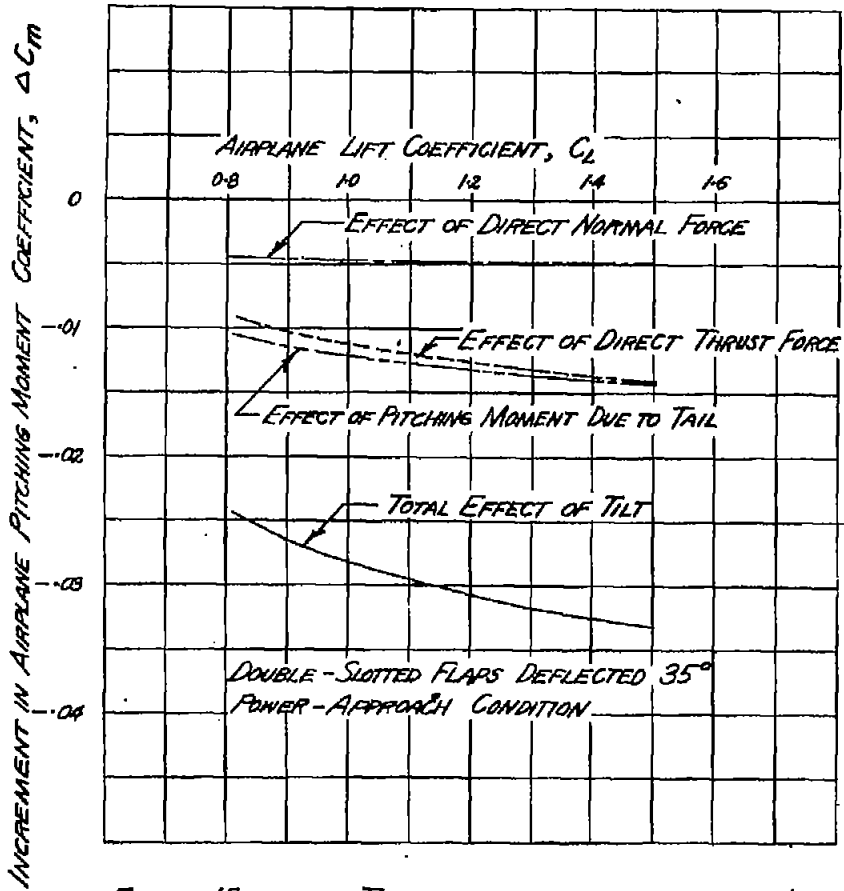 INCREMENT IN AIRPLANE PITCHING MOMENT COEFFICIENT, ΔCm
AIRPLANE LIFT COEFFICIENT, CL
0.8 1.0 1.2 1.4 1.6
0
EFFECT OF DIRECT NORMAL FORCE
-.01
EFFECT OF DIRECT THRUST FORCE
EFFECT OF PITCHING MOMENT DUE TO TAIL
-.02
TOTAL EFFECT OF TILT
-.03
DOUBLE-SLOTTED FLAPS DEFLECTED 35°
POWER-APPROACH CONDITION
-.04